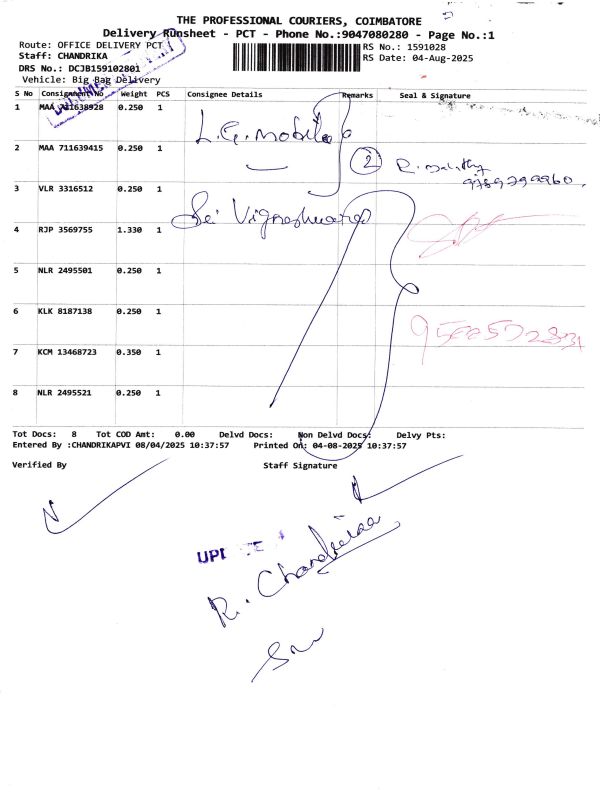 THE PROFESSIONAL COURIERS, COIMBATORE
Delivery Runsheet - PCT - Phone No.:9047080280 - Page No.:1
Route: OFFICE DELIVERY PCT
Staff: CHANDRIKA
RS No.: 1591028
RS Date: 04-Aug-2025
DRS No.: DCJB159102801
Vehicle: Big Bag Delivery
S No Consignment No Weight PCS Consignee Details Remarks Seal & Signature
1 MAA 711638928 0.250 1
L.G. mobiles
2 MAA 711639415 0.250 1
2 R.
3 VLR 3316512 0.250 1
Sri Vigneshwara
4 RJP 3569755 1.330 1
5 NLR 2495501 0.250 1
6 KLK 8187138 0.250 1
7 KCM 13468723 0.350 1
8 NLR 2495521 0.250 1
Tot Docs: 8 Tot COD Amt: 0.00 Delvd Docs: Non Delvd Docs: Delvy Pts:
Entered By :CHANDRIKAPVI 08/04/2025 10:37:57 Printed On: 04-08-2025 10:37:57
Verified By Staff Signature
R. Chandrikaa